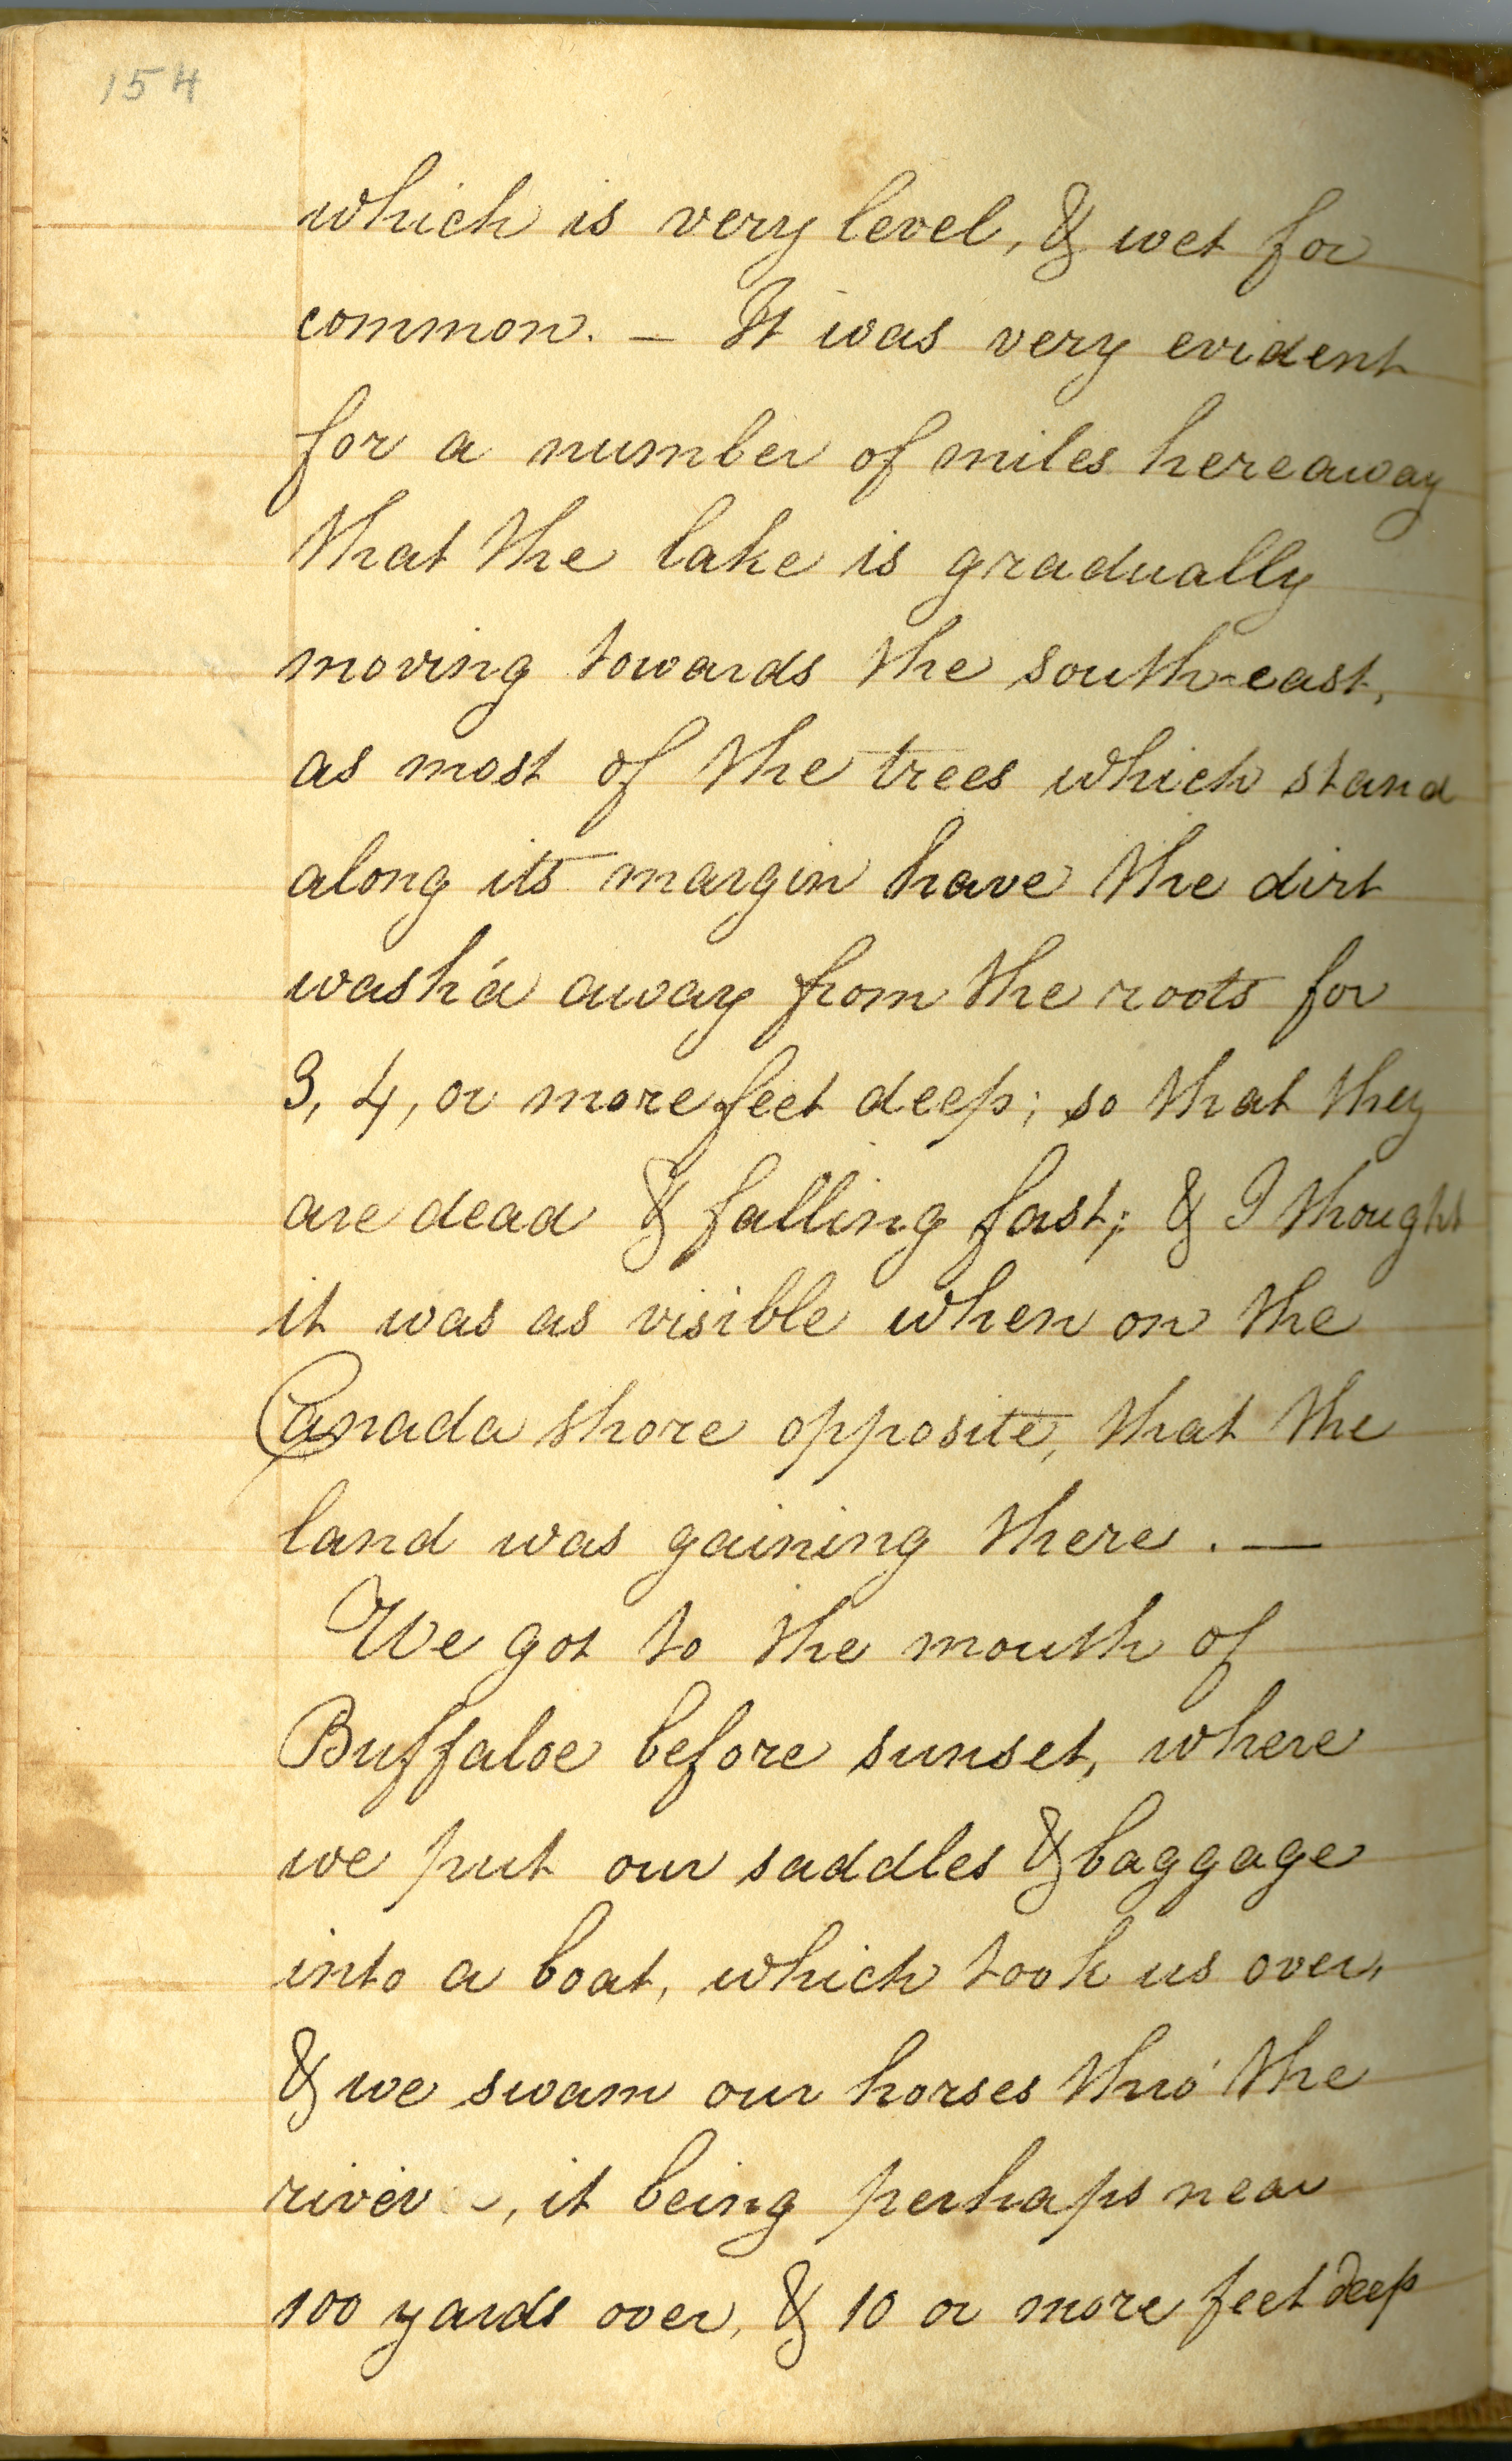 154
which is very level, & wet for
common. – It was very evident
for a number of miles hereaway
that the lake is gradually
moving towards the south-east,
as most of the trees which stand
along its margin have the dirt
wash'd away from the roots for
3, 4, or more feet deep; so that they
are dead & falling fast; & I thought
it was as visible when on the
Canada shore opposite, that the
land was gaining there. —
We got to the mouth of
Buffaloe before sunset, where
we put our saddles & baggage
into a boat, which took us over,
& we swam our horses thro' the
river, it being perhaps near
100 yards over, & 10 or more feet deep